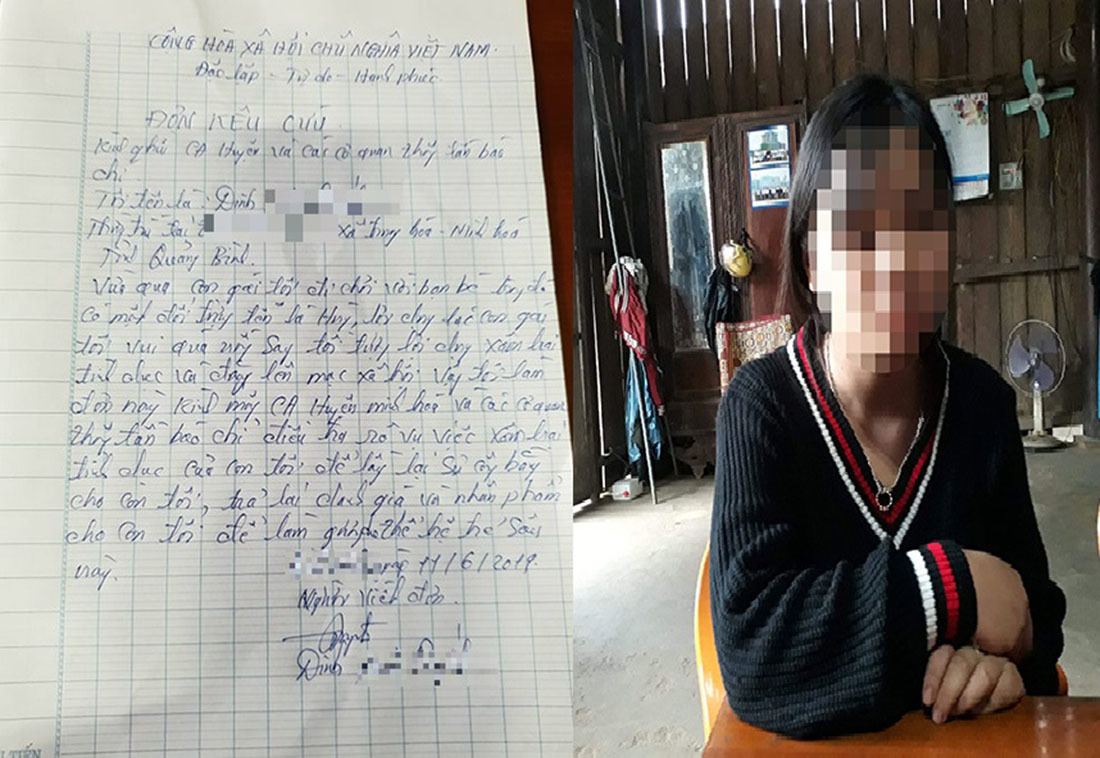 CÔNG HOÀ XÃ HỘI CHỦ NGHĨA VIỆT NAM.
Độc lập - Tự do - Hạnh phúc
ĐƠN KÊU CỨU.
Kính gửi CA Huyện và các cơ quan thông tấn báo
chí
Tôi tên là: Đinh
Thường trú tại xã Trung hoá - Minh hoá
Tỉnh Quảng Bình.
Vừa qua con gái tôi đi chơi với bạn bè trong đó
có một đối tượng tên là Huy, lợi dụng lúc con gái
tôi vui quá uống say tôi tượng lợi dụng xâm hại
tình dục và đăng lên mạc xã hội Vậy tôi làm
đơn này Kính mong CA Huyện minh hoá và các cơ quan
thông tấn báo chí điều tra rõ vụ việc xâm hại
tình dục của con tôi để lấy lại sự công bằng
cho con tôi, trả lại danh giá và nhân phẩm
cho con tôi để làm gương cho thế hệ sau
này.
ngày 11/6/2019.
Người viết đơn.
Đinh
TIẾN